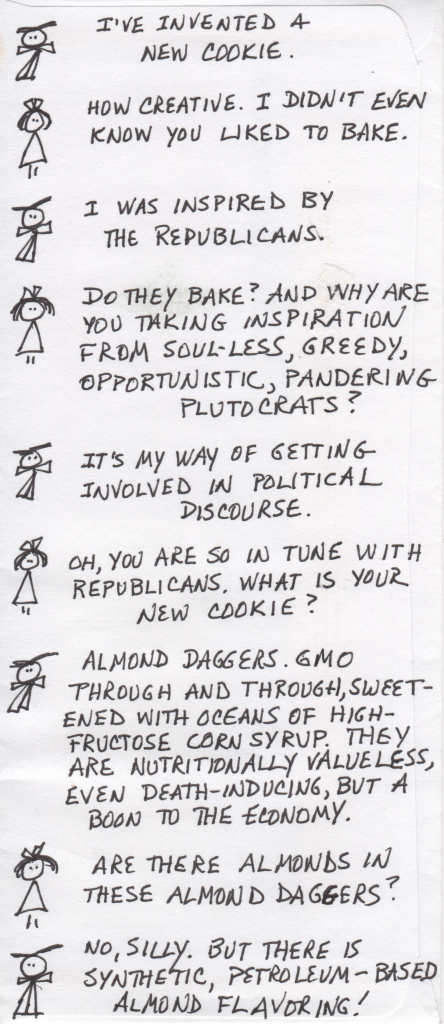 I'VE INVENTED A
NEW COOKIE.
HOW CREATIVE. I DIDN'T EVEN
KNOW YOU LIKED TO BAKE.
I WAS INSPIRED BY
THE REPUBLICANS.
DO THEY BAKE? AND WHY ARE
YOU TAKING INSPIRATION
FROM SOUL-LESS, GREEDY,
OPPORTUNISTIC, PANDERING
PLUTOCRATS?
IT'S MY WAY OF GETTING
INVOLVED IN POLITICAL
DISCOURSE.
OH, YOU ARE SO IN TUNE WITH
REPUBLICANS. WHAT IS YOUR
NEW COOKIE?
ALMOND DAGGERS. GMO
THROUGH AND THROUGH, SWEET-
ENED WITH OCEANS OF HIGH-
FRUCTOSE CORN SYRUP. THEY
ARE NUTRITIONALLY VALUELESS,
EVEN DEATH-INDUCING, BUT A
BOON TO THE ECONOMY.
ARE THERE ALMONDS IN
THESE ALMOND DAGGERS?
NO, SILLY. BUT THERE IS
SYNTHETIC, PETROLEUM-BASED
ALMOND FLAVORING!